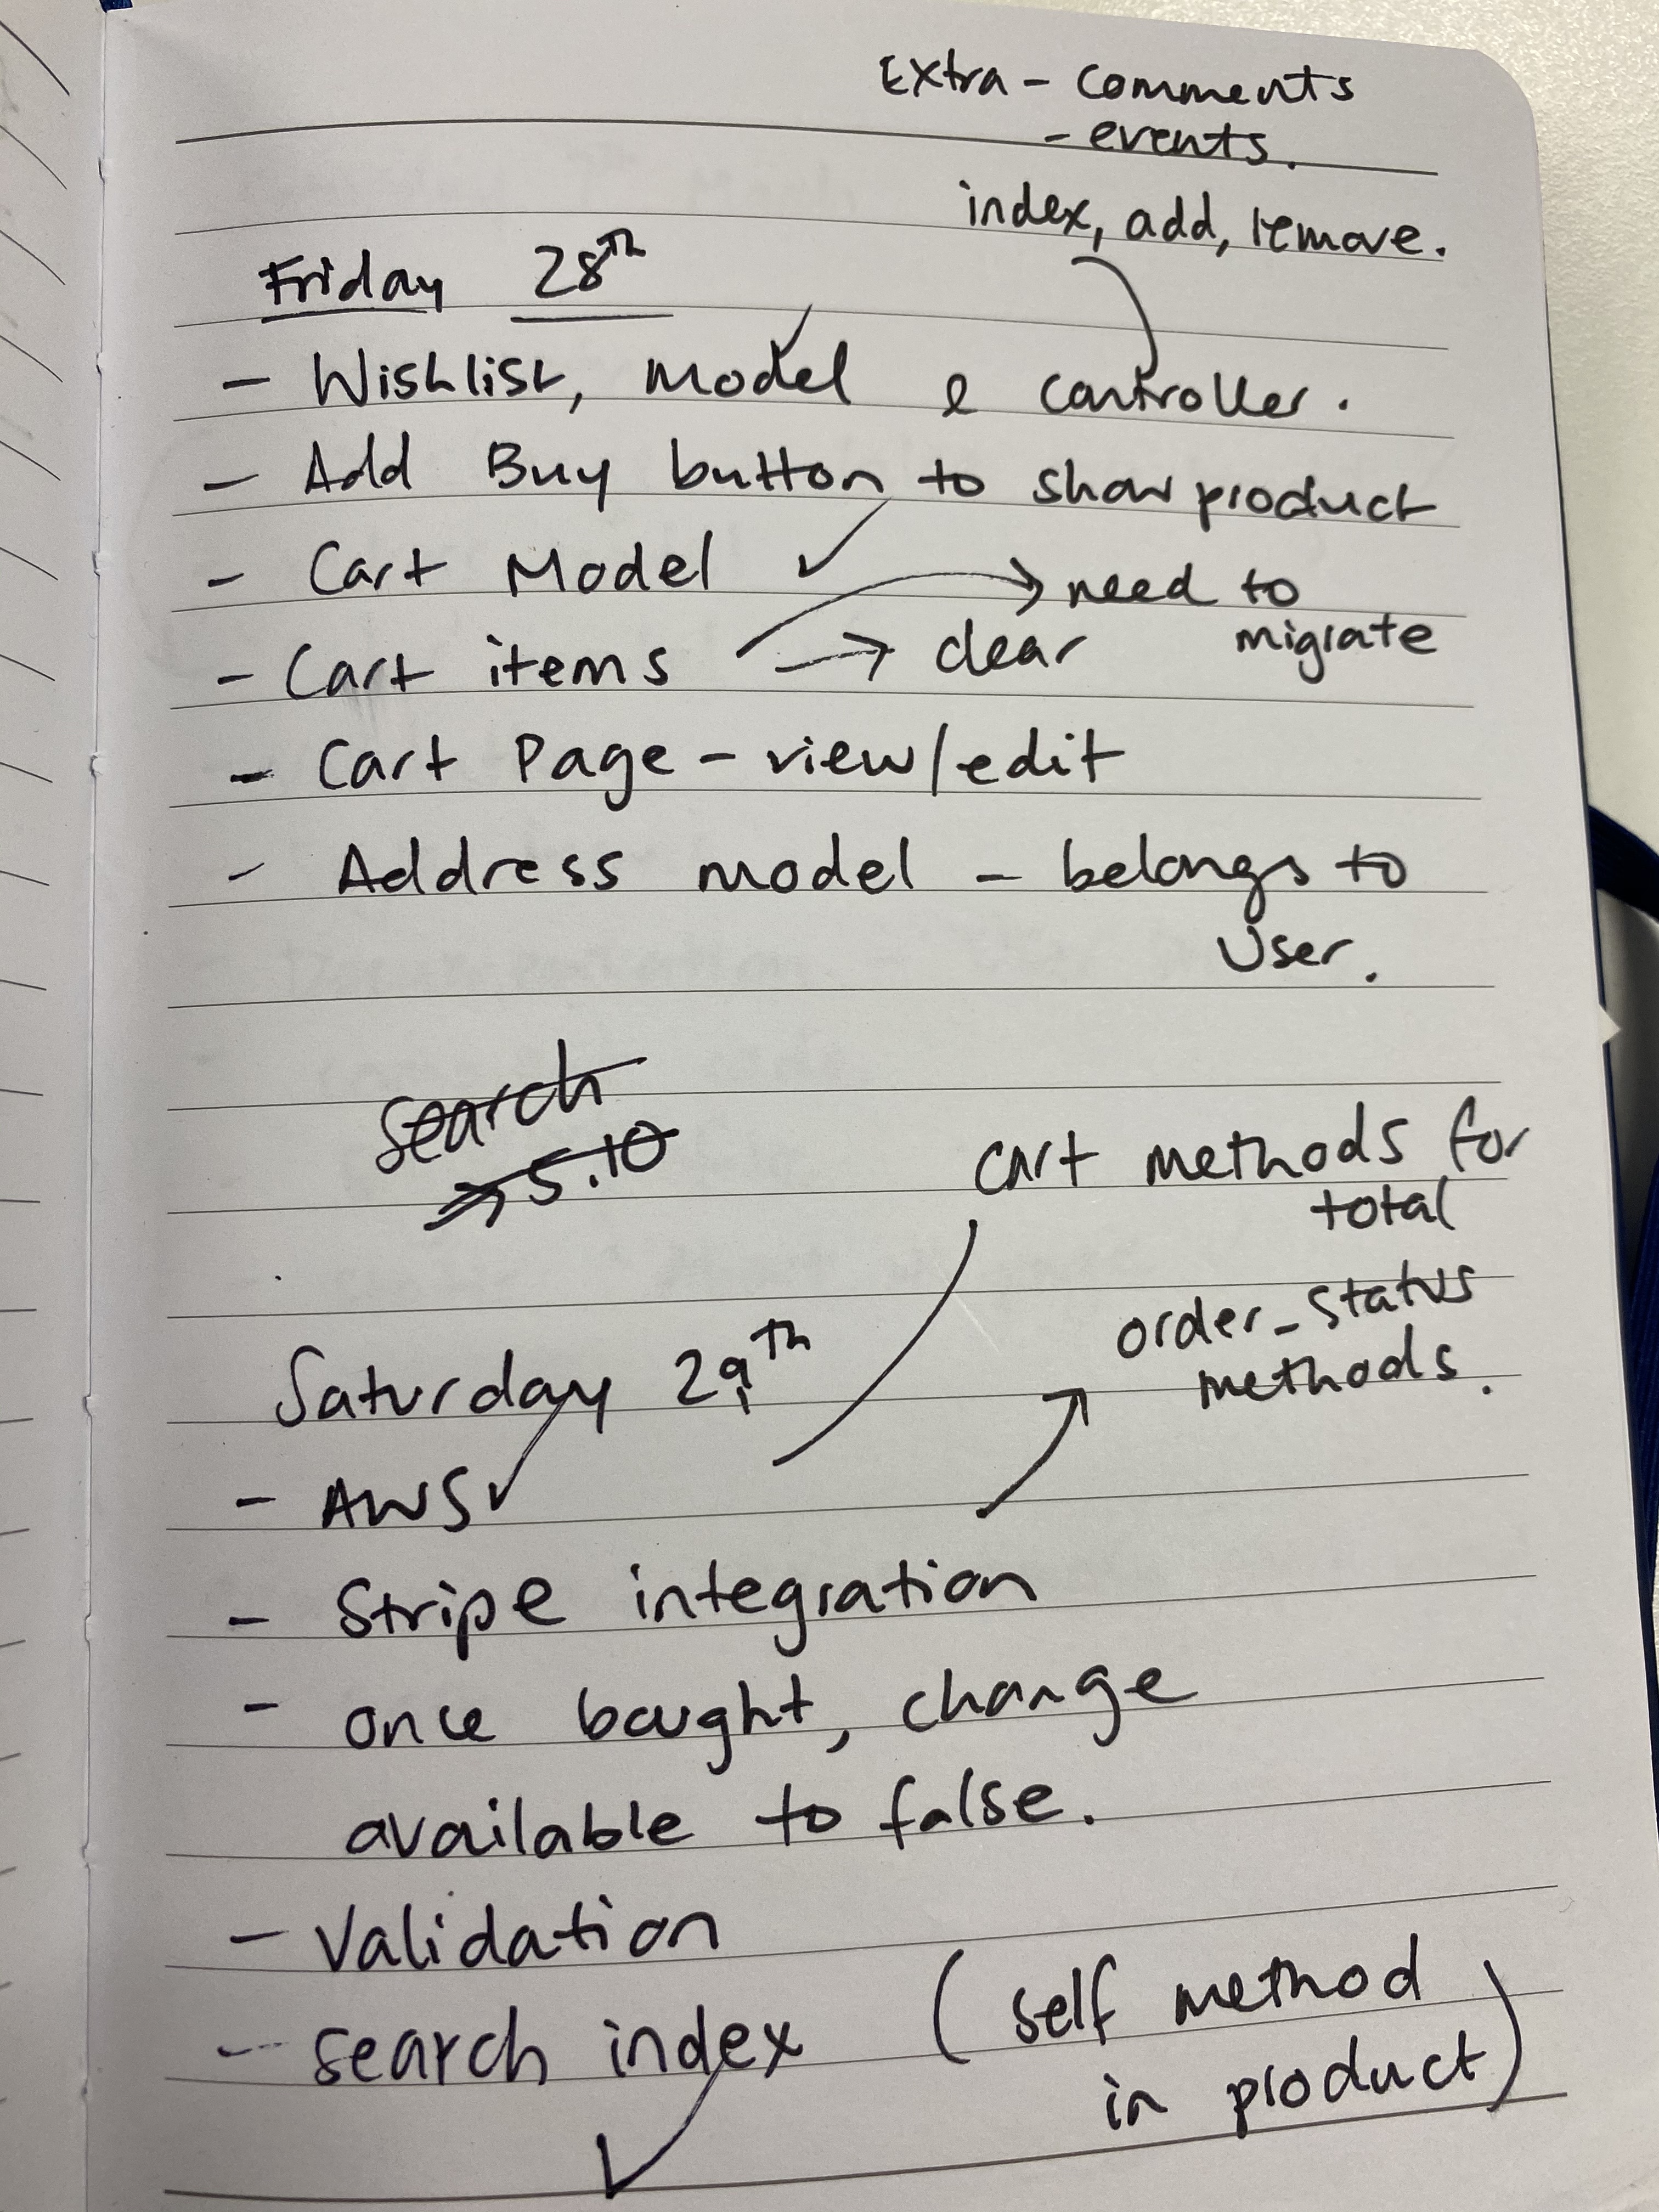 Extra - comments
- events.
index, add, remove.
Friday 28th
- Wishlist, model & controller.
- Add Buy button to show product
- Cart Model ✓
→ need to
migrate
- Cart items → clear
- Cart Page - view/edit
- Address model - belongs to
User.
Search
→ 5.10
cart methods for
total
order_status
methods.
Saturday 29th
- AWS ✓
- Stripe integration
- once bought, change
available to false.
- Validation
- search index (self method
in product)